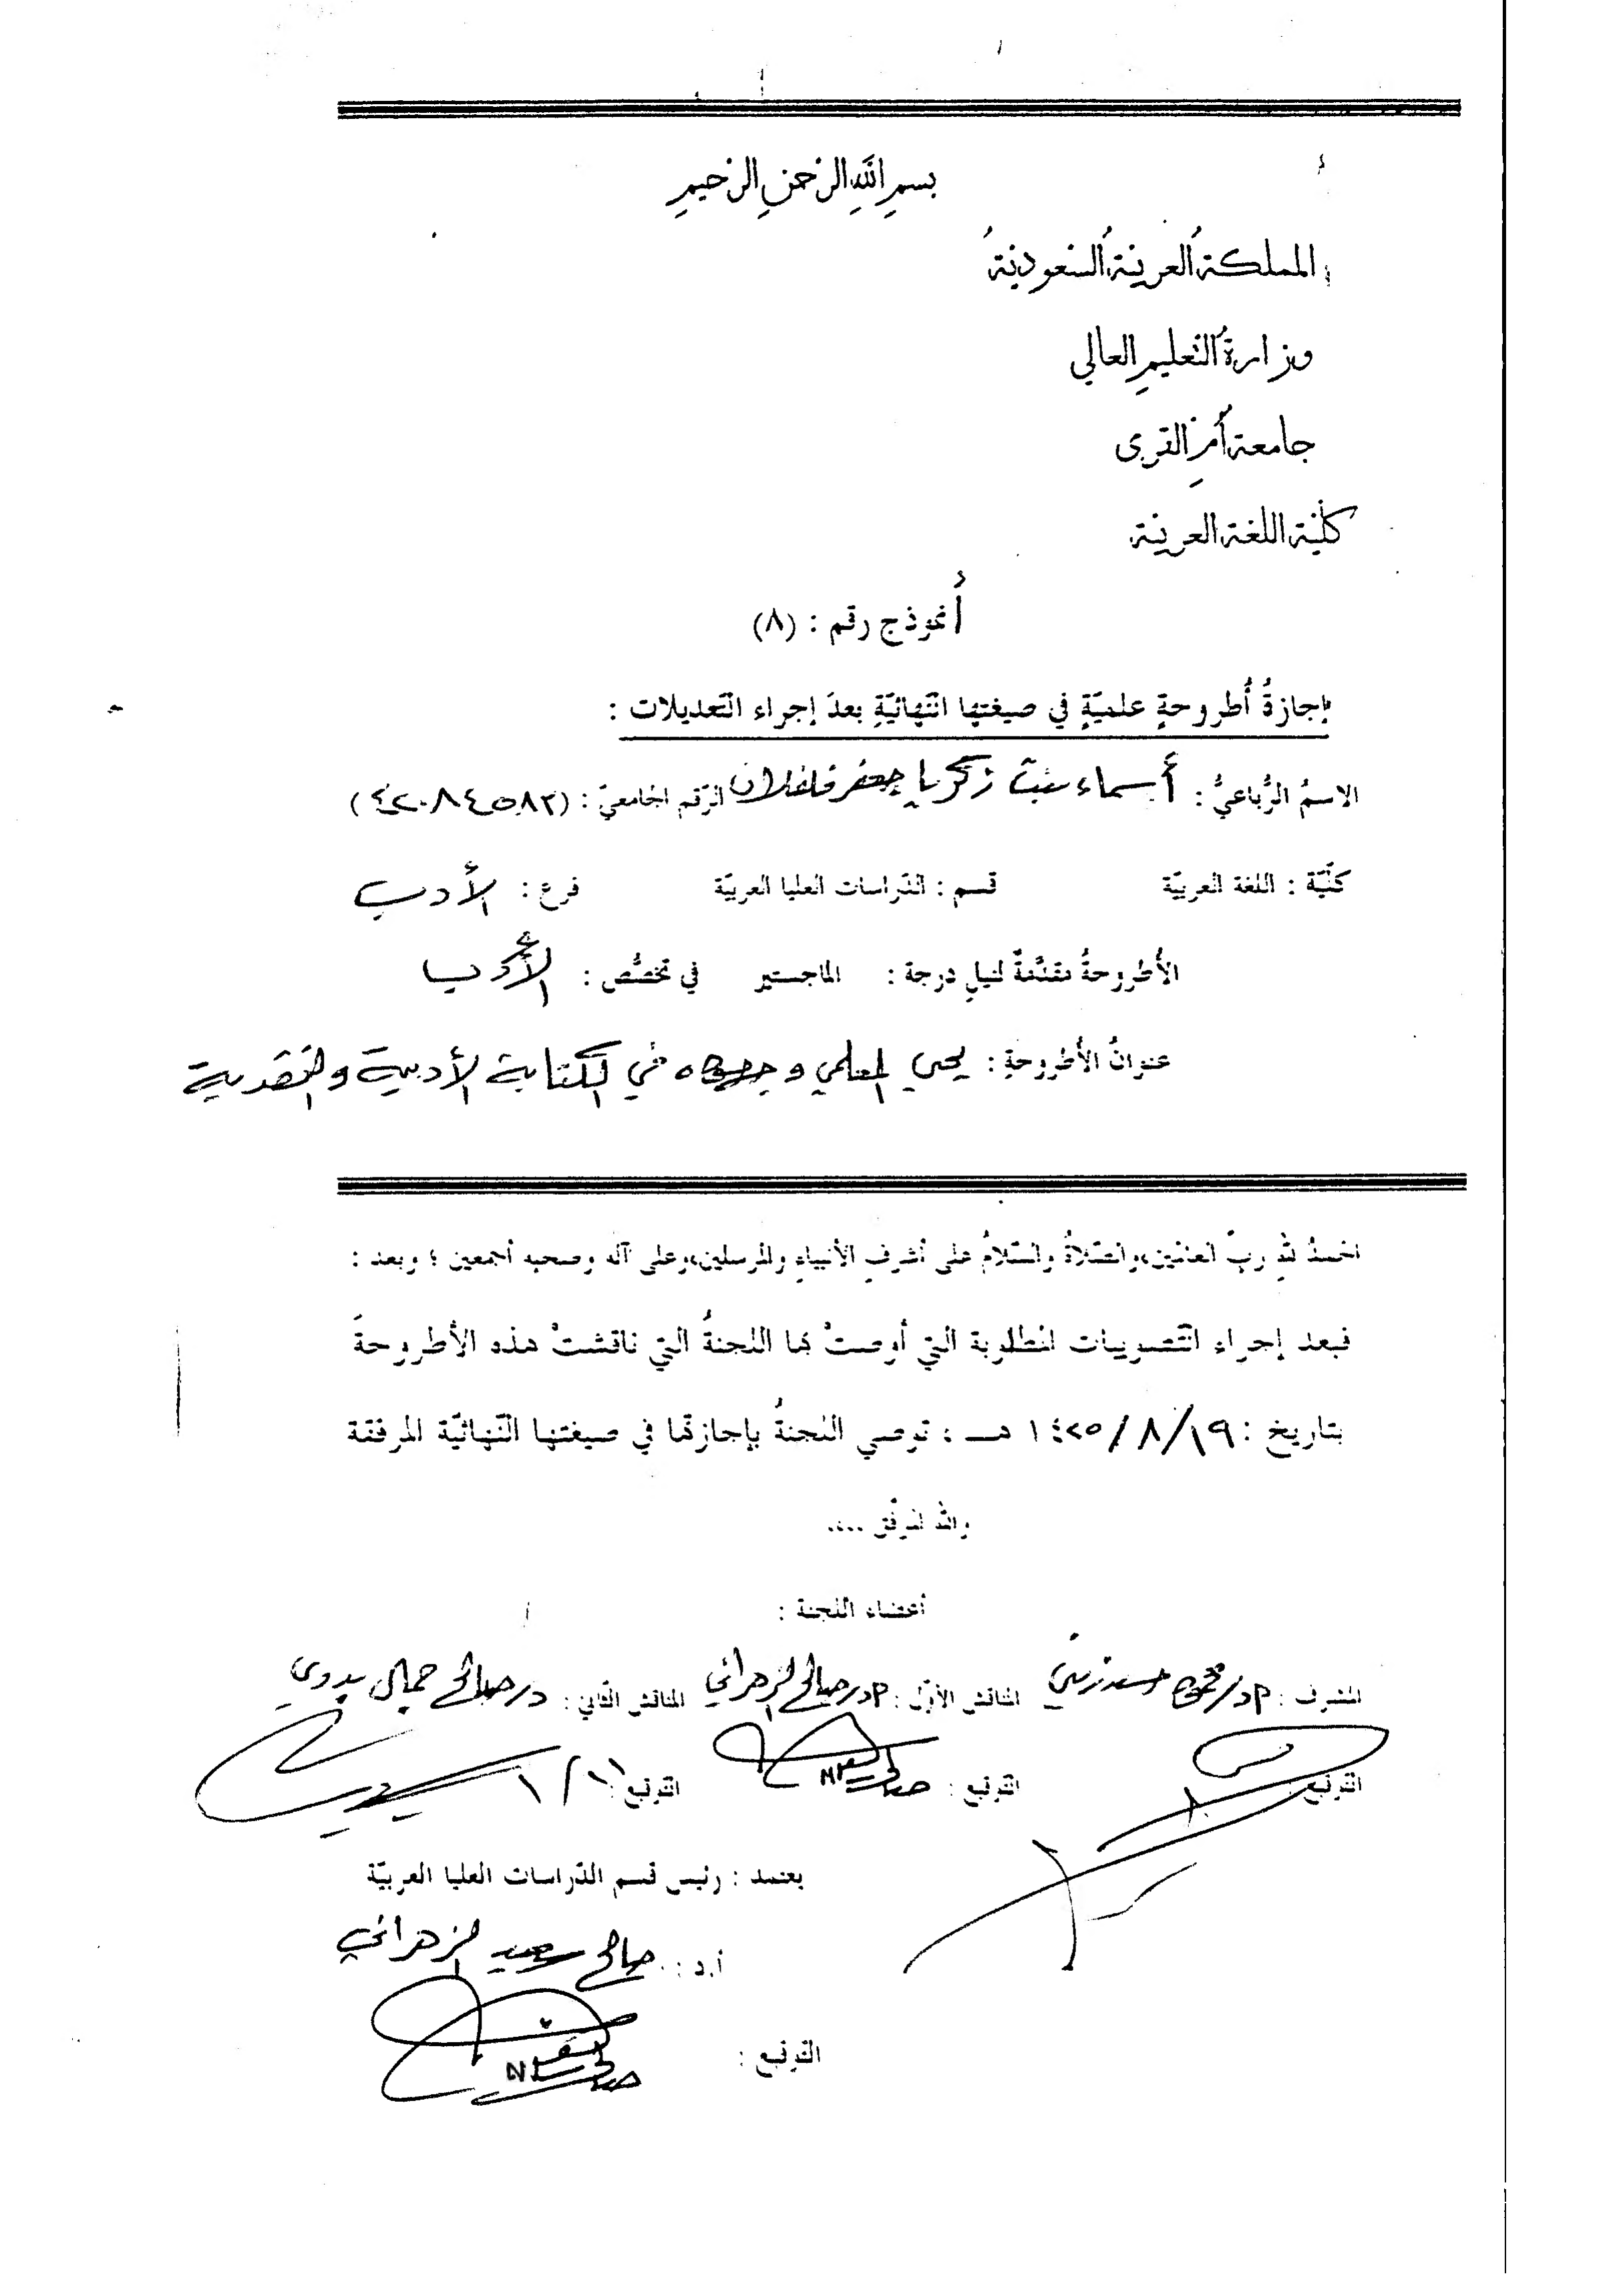 بسم الله الرحمن الرحيم
المملكة العربية السعودية
وزارة التعليم العالي
جامعة أم القرى
كلية اللغة العربية
أُنموذج رقم : (٨)
إجازةُ أُطروحةٍ علميّةٍ في صيغتها النّهائيّةِ بعدَ إجراء التّعديلات :
الاسمُ الرُّباعيُّ : أسماء بنت زكريا جعفر فلفلان الرّقم الجامعيّ : (٤٢٠٨٤٥٨٢)
كليّة : اللغة العربيّة قسم : الدّراسات العليا العربيّة فرع : الأدب
الأُطروحةُ مقدّمةٌ لنيلِ درجة : الماجستير في تخصُّص : الأدب
عنوانُ الأطروحةِ : يحيى المعلمي وجهوده في الكتابة الأدبية والنقدية
الحمدُ للهِ ربّ العالمين، والصّلاةُ والسّلامُ على أشرفِ الأنبياءِ والمرسلين، وعلى آله وصحبه أجمعين ؛ وبعد :
فبعد إجراء التّصويبات المطلوبة التي أوصتْ بها اللجنةُ التي ناقشتْ هذه الأطروحةَ
بتاريخ : ١٩/ ٨/ ١٤٢٥ هـ ، توصي اللجنةُ بإجازتها في صيغتها النّهائيّة المرفقة
والله الموفّق ....
أعضاء اللجنة :
المشرف : أ.د/ محمود حسن زيني المناقش الأوّل : أ.د/ صالح الزهراني المناقش الثّاني : د/ صالح جمال بدوي
التّوقيع : التّوقيع : التّوقيع :
يعتمد : رئيس قسم الدّراسات العليا العربيّة
أ.د : صالح سعيد الزهراني
التّوقيع :